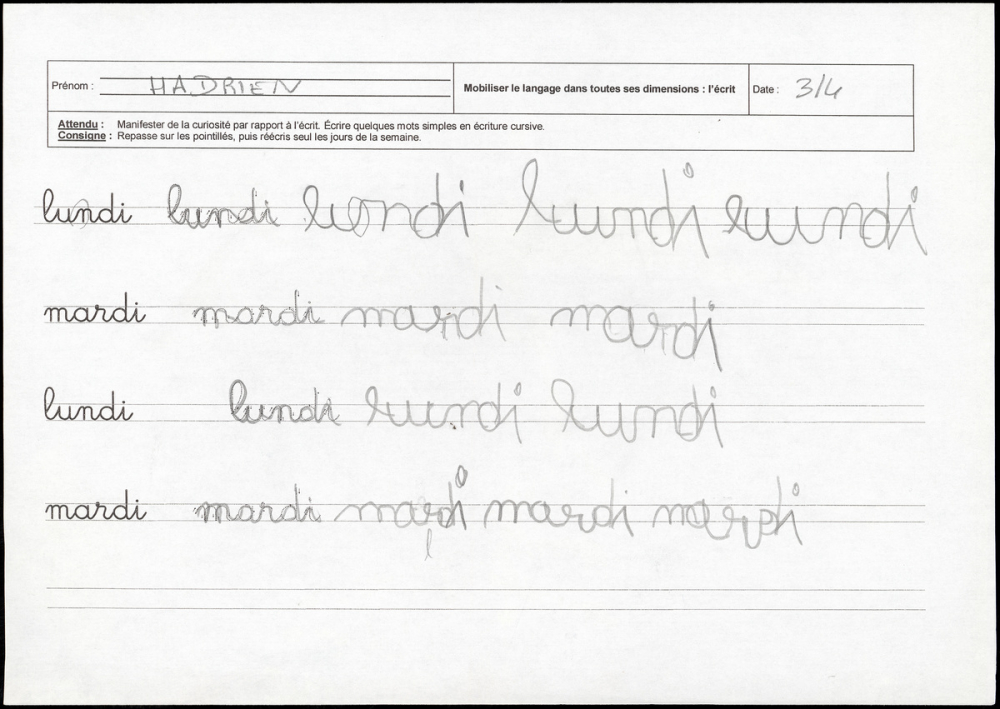 Prénom : HADRIEN Mobiliser le langage dans toutes ses dimensions : l'écrit Date : 3/4
Attendu : Manifester de la curiosité par rapport à l'écrit. Écrire quelques mots simples en écriture cursive.
Consigne : Repasse sur les pointillés, puis réécris seul les jours de la semaine.
lundi lundi lundi lundi lundi
mardi mardi mardi mardi
lundi lundi lundi lundi
mardi mardi mardi mardi mardi